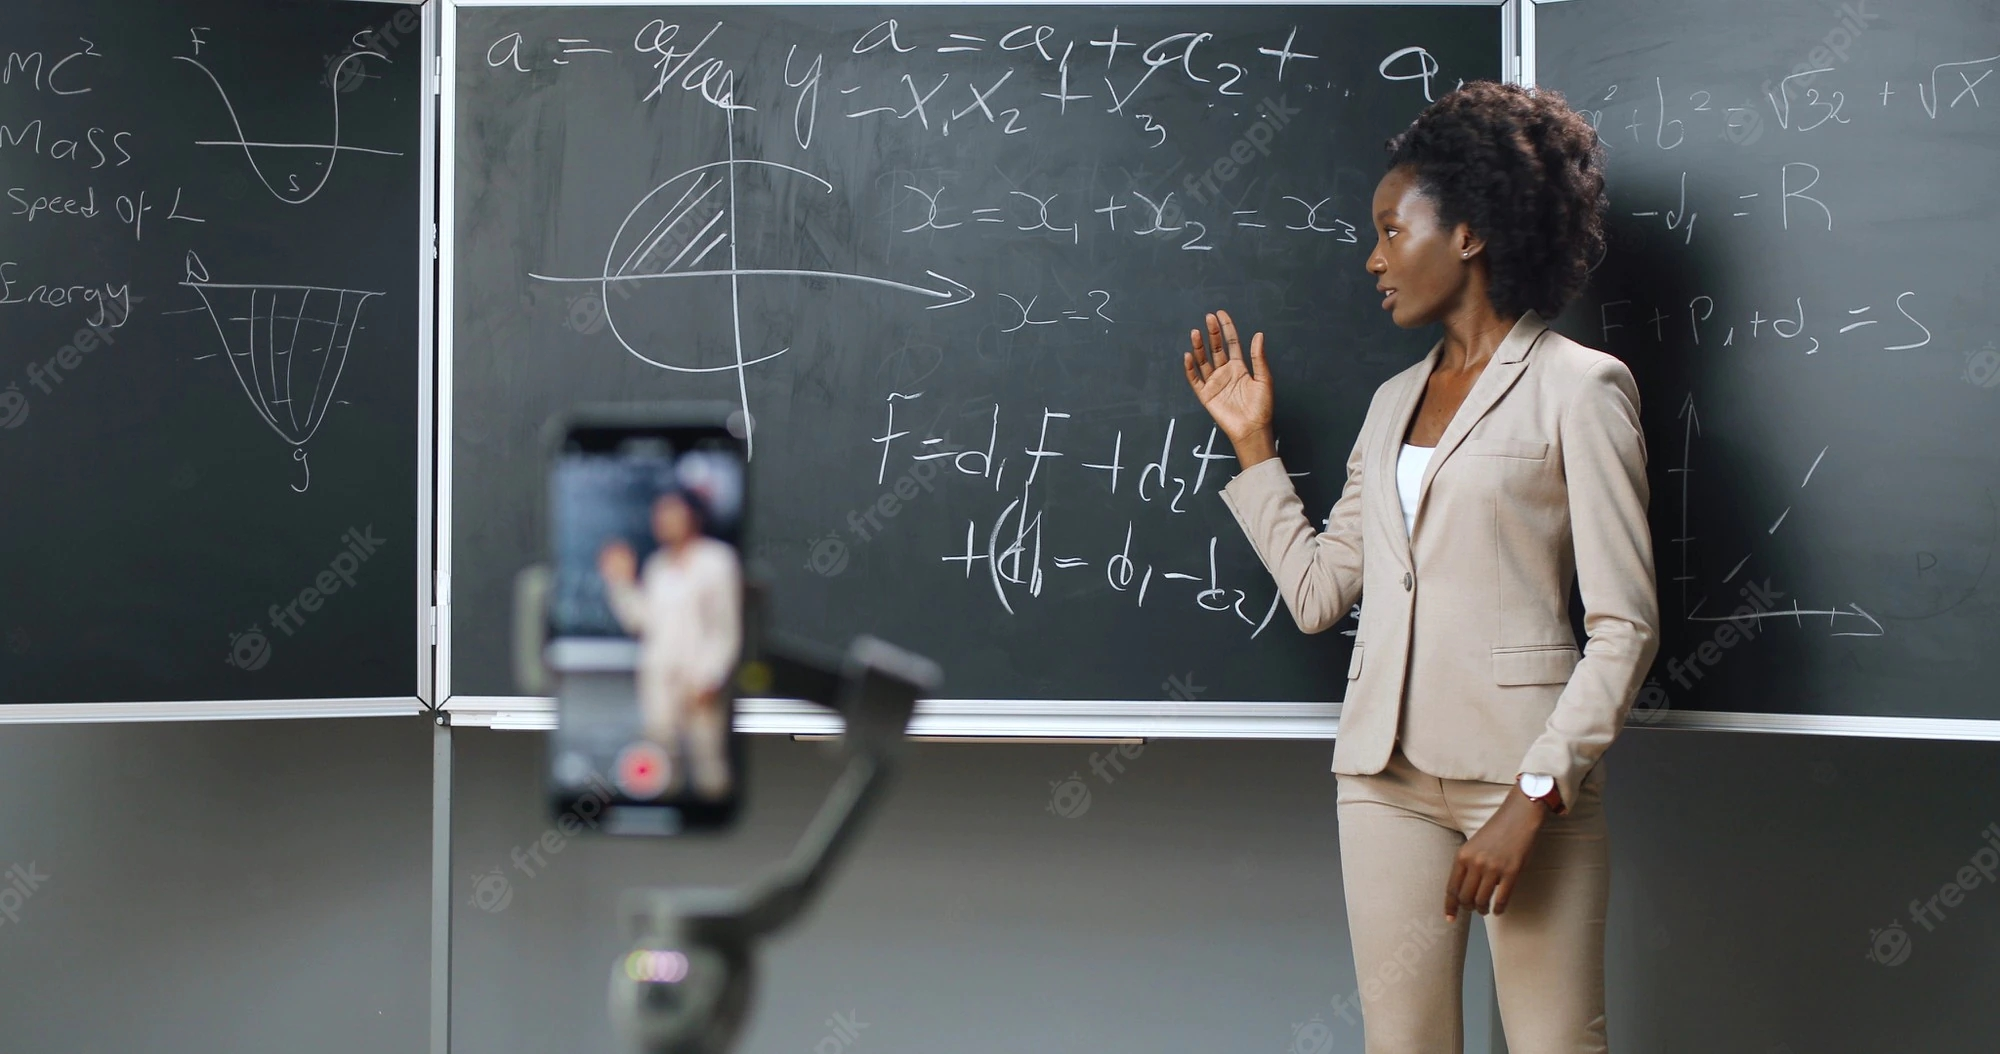 MC²
Mass
Speed of L
Energy
F
S
g
a =
y = x₁x₂ + x₃
a = a₁ + a₂ + ...
x = x₁ + x₂ = x₃
x = ?
F = d₁F + d₂
= d₁ - d₂)
a² + b² = √32 + √x
- d₁ = R
F + P₁ + d₂ = S
freepik